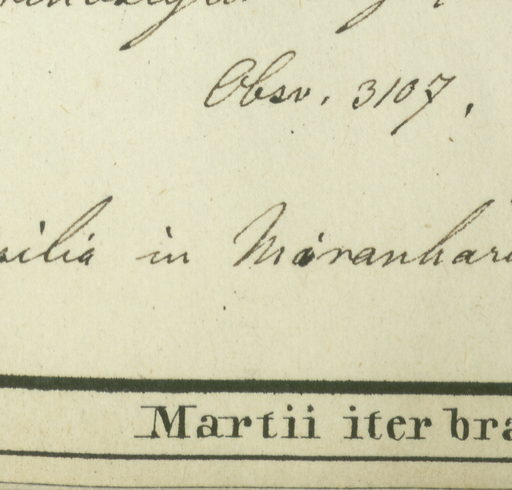 Obsv. 3107.
silia in Maranhari
Martii iter bra